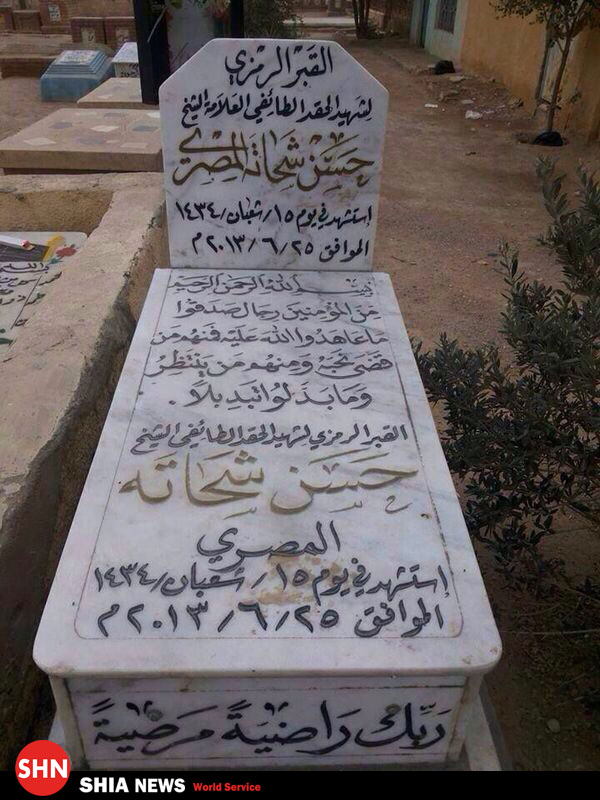 القبر الرمزي
لشهيد الحقد الطائفي العلامة الشيخ
حسن شحاته المصري
إستشهد في يوم ١٥/ شعبان/ ١٤٣٤
الموافق ٢٥/ ٦/ ٢٠١٣ م
بسم الله الرحمن الرحيم
من المؤمنين رجال صدقوا
ما عاهدوا الله عليه فمنهم من
قضى نحبه ومنهم من ينتظر
وما بدلوا تبديلا .
القبر الرمزي لشهيد الحقد الطائفي الشيخ
حسن شحاته
المصري
إستشهد في يوم ١٥/ شعبان/ ١٤٣٤
الموافق ٢٥/ ٦/ ٢٠١٣ م
ربك راضيةً مرضيةً
SHN SHIA NEWS World Service